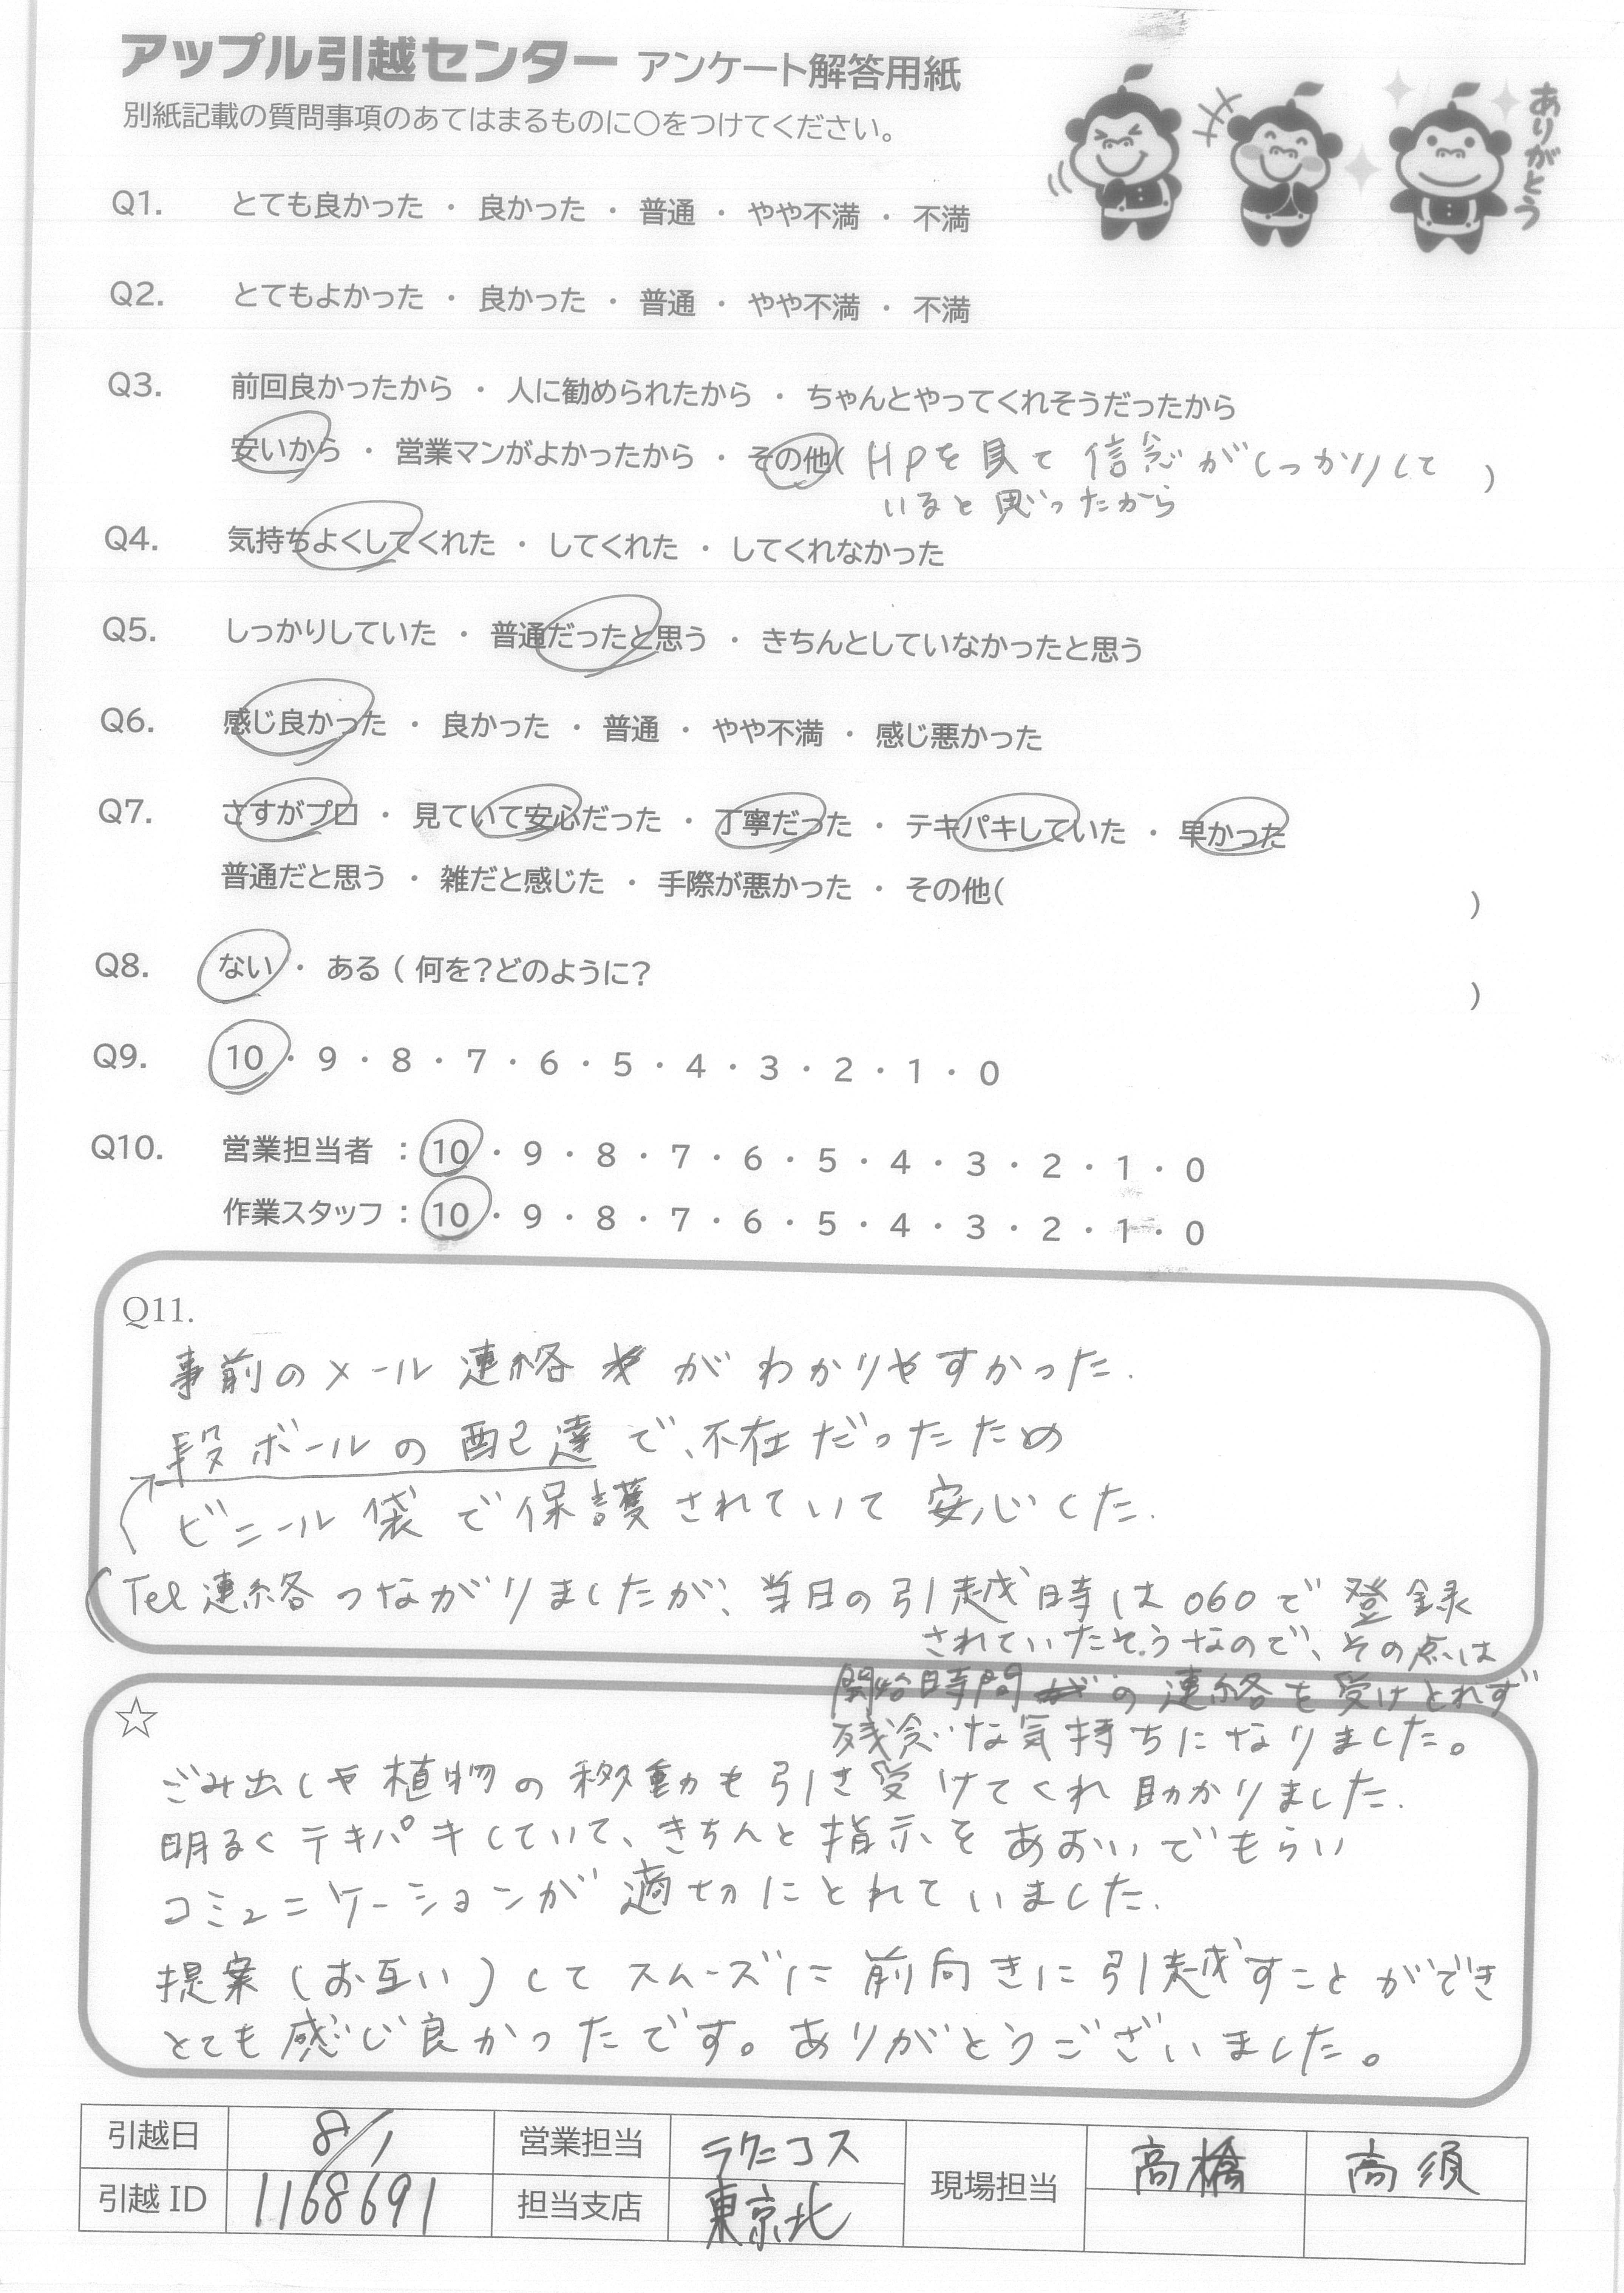 アップル引越センター アンケート解答用紙
別紙記載の質問事項のあてはまるものに○をつけてください。
ありがとう
Q1. とても良かった ・ 良かった ・ 普通 ・ やや不満 ・ 不満
Q2. とてもよかった ・ 良かった ・ 普通 ・ やや不満 ・ 不満
Q3. 前回良かったから ・ 人に勧められたから ・ ちゃんとやってくれそうだったから
安いから ・ 営業マンがよかったから ・ その他( HPを見て 信念がしっかりして )
いると思ったから
Q4. 気持ちよくしてくれた ・ してくれた ・ してくれなかった
Q5. しっかりしていた ・ 普通だったと思う ・ きちんとしていなかったと思う
Q6. 感じ良かった ・ 良かった ・ 普通 ・ やや不満 ・ 感じ悪かった
Q7. さすがプロ ・ 見ていて安心だった ・ 丁寧だった ・ テキパキしていた ・ 早かった
普通だと思う ・ 雑だと感じた ・ 手際が悪かった ・ その他( )
Q8. ない ・ ある ( 何を?どのように? )
Q9. 10 ・ 9 ・ 8 ・ 7 ・ 6 ・ 5 ・ 4 ・ 3 ・ 2 ・ 1 ・ 0
Q10. 営業担当者 : 10 ・ 9 ・ 8 ・ 7 ・ 6 ・ 5 ・ 4 ・ 3 ・ 2 ・ 1 ・ 0
作業スタッフ : 10 ・ 9 ・ 8 ・ 7 ・ 6 ・ 5 ・ 4 ・ 3 ・ 2 ・ 1 ・ 0
Q11.
事前のメール連絡がわかりやすかった.
段ボールの配達で、不在だったため
ビニール袋で保護されていて安心した.
Tel連絡つながりましたが、当日の引越時は060で登録
されていたそうなので、その点は
開始時間の連絡を受けとれず
残念な気持ちになりました。
☆
ごみ出しや植物の移動も引き受けてくれ助かりました.
明るくテキパキしていて、きちんと指示をあおいでもらい
コミュニケーションが適切にとれていました.
提案(お互い)してスムーズに前向きに引越すことができ
とても感じ良かったです。ありがとうございました。
引越日 8/1 営業担当 ラクニコス 現場担当 高橋 高須
引越ID 1168691 担当支店 東京北